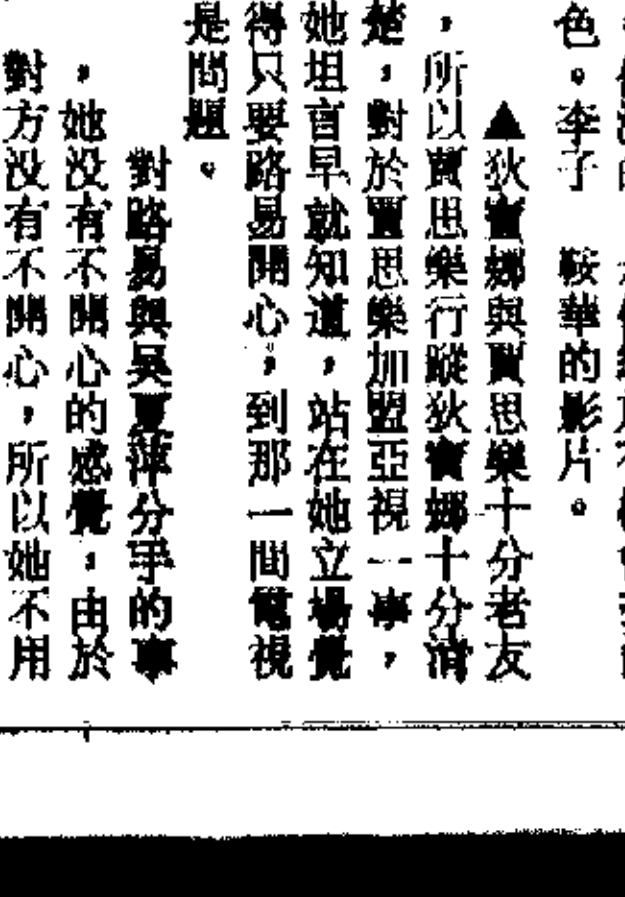 色。李子 鞍華的影片。
▲狄寶娜與賈思樂十分老友
，所以賈思樂行蹤狄寶娜十分清
楚，對於賈思樂加盟亞視一事，
她坦言早就知道，站在她立場覺
得只要路易開心，到那一間電視
是問題。
對路易與吳夏萍分手的事
，她没有不開心的感覺，由於
對方没有不開心，所以她不用